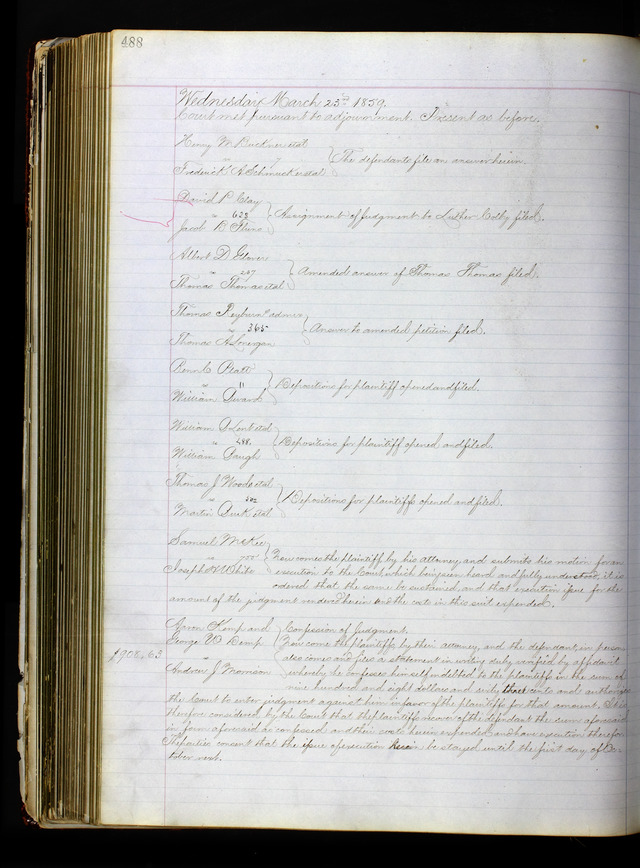 488
Wednesday March 23d 1859.
Court met pursuant to adjournment. Present as before.
Henry M Buckner et al
vs
The defendants file an answer herein.
Frederick A Schmucker et al
David P Clay
vs 629
Assignment of Judgment to Luther Colby filed.
Jacob B
Albert D Glover
vs 207
Amended answer of Thomas Thomas filed.
Thomas Thomas et al
Thomas Reyburn admr
vs 365
Answer to amended petition filed.
Thomas A Lonergan
Pratt
vs 11
Depositions for plaintiff opened and filed.
William
William D Lent et al
vs 488
Depositions for plaintiff opened and filed.
William Baugh
Thomas J Wood et al
vs 502
Depositions for plaintiffs opened and filed.
Martin et al
Samuel McKee
vs
Now comes the plaintiff by his attorney and submits his motion for an
Joseph A White
execution to the Court, which being seen heard and fully understood, it is
ordered that the same be sustained, and that execution issue for the
amount of the judgment rendered herein and the costs in this suit expended.
Aaron Kemp and
Confession of Judgment.
George W Kemp
Now come the plaintiffs by their attorney, and the defendant in person
$908.63
vs
also comes and files a statement in writing duly verified by affidavit
Andrew J Morrison
whereby he confesses himself indebted to the plaintiffs in the sum of
nine hundred and eight dollars and sixty three cents and authorizes
the Court to enter judgment against him in favor of the plaintiffs for that amount. It is
therefore considered by the Court that the plaintiffs recover of the defendant the sum aforesaid
in form aforesaid as confessed and their costs herein expended, and have execution therefor
The parties consent that the issue of execution herein be stayed until the first day of Oc-
tober next.